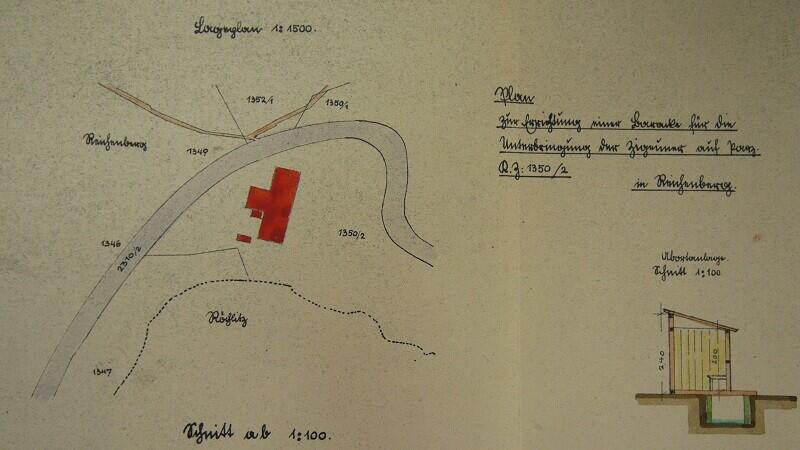 Lageplan 1:1500.
Plan
zur Errichtung einer Baracke für die
Unterbringung der Zigeuner auf Parz.
K.Z: 1350/2
in Reichenberg.
1352/1
1350/1
Reichenberg
1349
1350/2
1346
2310/2
Röchlitz
1347
Abortanlage.
Schnitt 1:100
240
200
Schnitt ab 1:100.